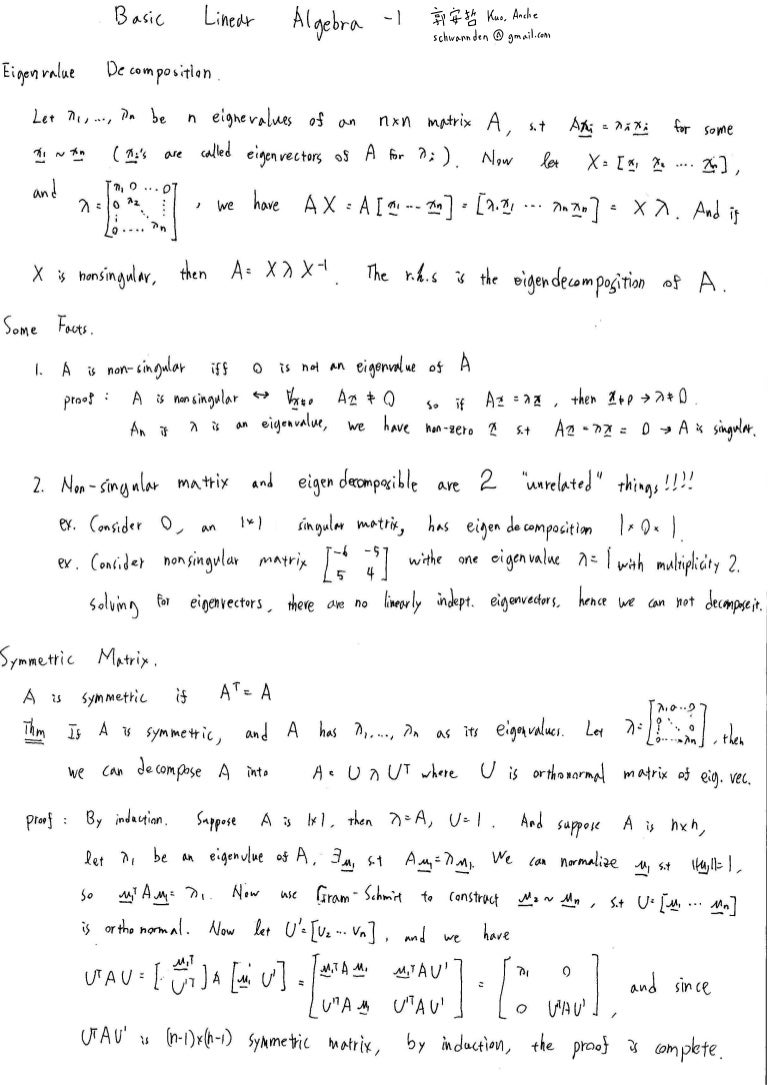 Basic Linear Algebra -1 郭安哲 Kuo, Anche
schwannden @ gmail.com
Eigenvalue Decomposition.
Let λ1, ..., λn be n eignevalues of an n×n matrix A, s.t Axi = λixi for some
x1 ~ xn (xi's are called eigenvectors of A for λi). Now let X = [x1 x2 .... xn],
and λ = [λ1 0 ... 0; 0 λ2 ⋮; ⋮; 0 .... λn], we have AX = A[x1 ... xn] = [λ1x1 ... λnxn] = Xλ. And if
X is nonsingular, then A = XλX⁻¹. The r.h.s is the eigendecomposition of A.
Some Facts.
1. A is non-singular iff 0 is not an eigenvalue of A
proof : A is nonsingular ↔ ∀x≠0 Ax ≠ 0 so if Ax = λx, then x≠0 → λ≠0.
An if λ is an eigenvalue, we have non-zero x s.t Ax = λx = 0 → A is singular.
2. Non-singular matrix and eigen decomposible are 2 "unrelated" things!!!!
ex. Consider 0, an 1×1 singular matrix, has eigen decomposition 1×0×1.
ex. Consider nonsingular matrix [-6 -5; 5 4] withe one eigenvalue λ=1 with multiplicity 2.
solving for eigenvectors, there are no linearly indept. eigenvectors, hence we can not decompose it.
Symmetric Matrix.
A is symmetric if Aᵀ = A
Thm If A is symmetric, and A has λ1, ..., λn as its eigenvalues. Let λ = [λ1 0 .. 0; 0 ⋱ 0; 0 .... λn], then
we can decompose A into A = UλUᵀ where U is orthonormal matrix of eig. vec.
proof : By induction. Suppose A is 1×1, then λ=A, U=1. And suppose A is n×n,
let λ1 be an eigenvlue of A, ∃u1 s.t Au1 = λu1. We can normalize u1 s.t ||u1||=1,
so u1ᵀAu1 = λ1. Now use Gram-Schmit to construct u2 ~ un, s.t U = [u1 ... un]
is ortho normal. Now let U' = [v2 ... vn], and we have
UᵀAU = [u1ᵀ; U'ᵀ] A [u1 U'] = [u1ᵀAu1 u1ᵀAU'; U'ᵀAu1 U'ᵀAU'] = [λ1 0; 0 U'ᵀAU'], and since
U'ᵀAU' is (n-1)×(n-1) symmetric matrix, by induction, the proof is complete.